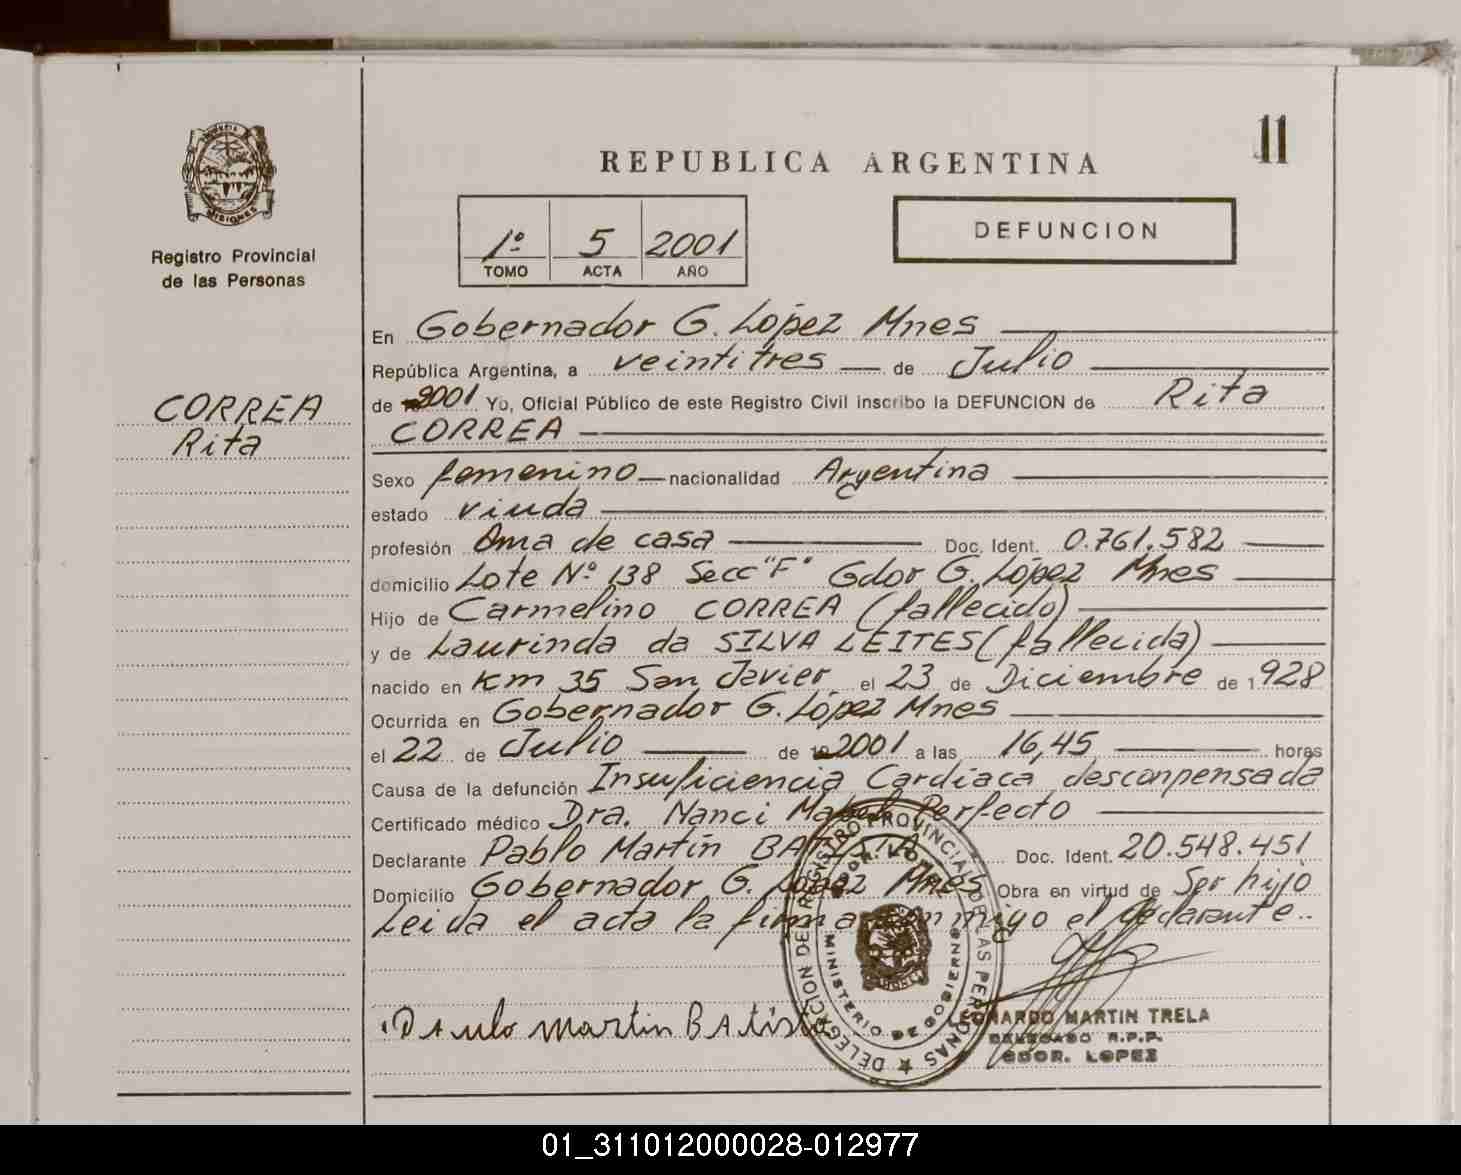 11
REPUBLICA ARGENTINA
MISIONES
Registro Provincial
de las Personas
1º 5 2001
TOMO ACTA AÑO
DEFUNCION
CORREA
Rita
En Gobernador G. López Mnes
República Argentina, a veintitres de Julio
de 2001 Yo, Oficial Público de este Registro Civil inscribo la DEFUNCION de Rita
CORREA
Sexo femenino nacionalidad Argentina
estado viuda
profesión Ama de casa Doc. Ident. 0.761.582
domicilio Lote Nº 138 Secc "F" Gdor G. López Mnes
Hijo de Carmelino CORREA (fallecido)
y de Laurinda da SILVA LEITES (fallecida)
nacido en Km 35 San Javier el 23 de Diciembre de 1.928
Ocurrida en Gobernador G. López Mnes
el 22 de Julio de 2001 a las 16,45 horas
Causa de la defunción Insuficiencia Cardiaca desconpensada
Certificado médico Dra. Nanci Mabel Perfecto
Declarante Pablo Martín BATISTA Doc. Ident. 20.548.451
Domicilio Gobernador G. López Mnes Obra en virtud de Ser hijo
Leida el acta la firma conmigo el declarante..
DELEGACION DEL REGISTRO PROVINCIAL DE LAS PERSONAS
GDOR. LOPEZ
MINISTERIO DE GOBIERNO
Paulo Martin BAtista
LEONARDO MARTIN TRELA
DELEGADO R.P.P.
GDOR. LOPEZ
01_311012000028-012977